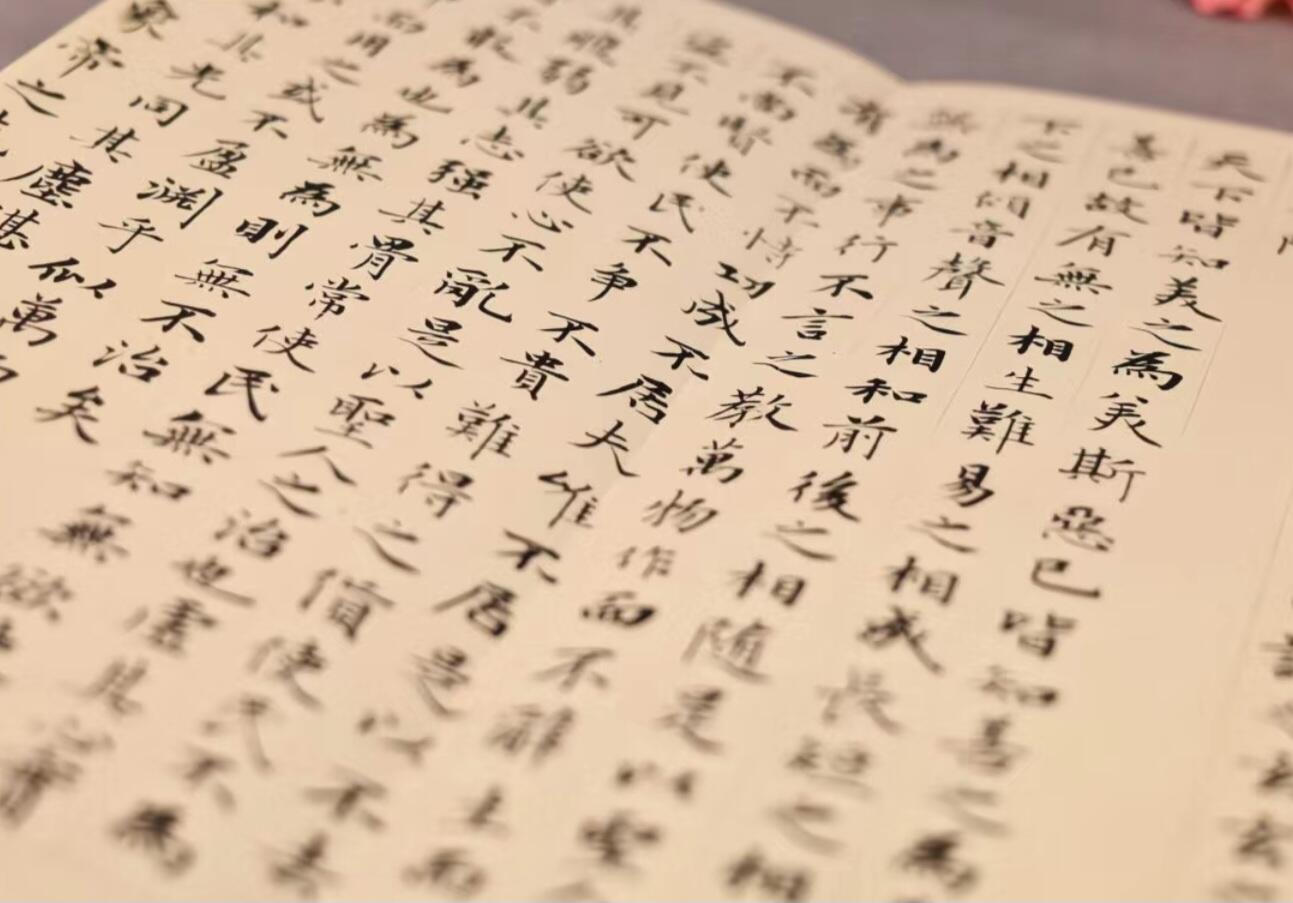 天下皆知美之為美斯惡已皆知善之為
善已故有無之相生難易之相成長短之相
下之相傾音聲之相和前後之相隨是以聖
無為之事行不言之教萬物作而不辭而
有為而不恃功成不居夫唯不居是以不去
不尚賢使民不爭不貴難得之價使民不為
盜不見可欲使心不亂是以聖人之治也虛其心實
其腹弱其志強其骨常使民無知無欲
不敢為也為無為則無不治矣
而用之或不盈淵乎似萬
和其光同其塵湛
象帝之